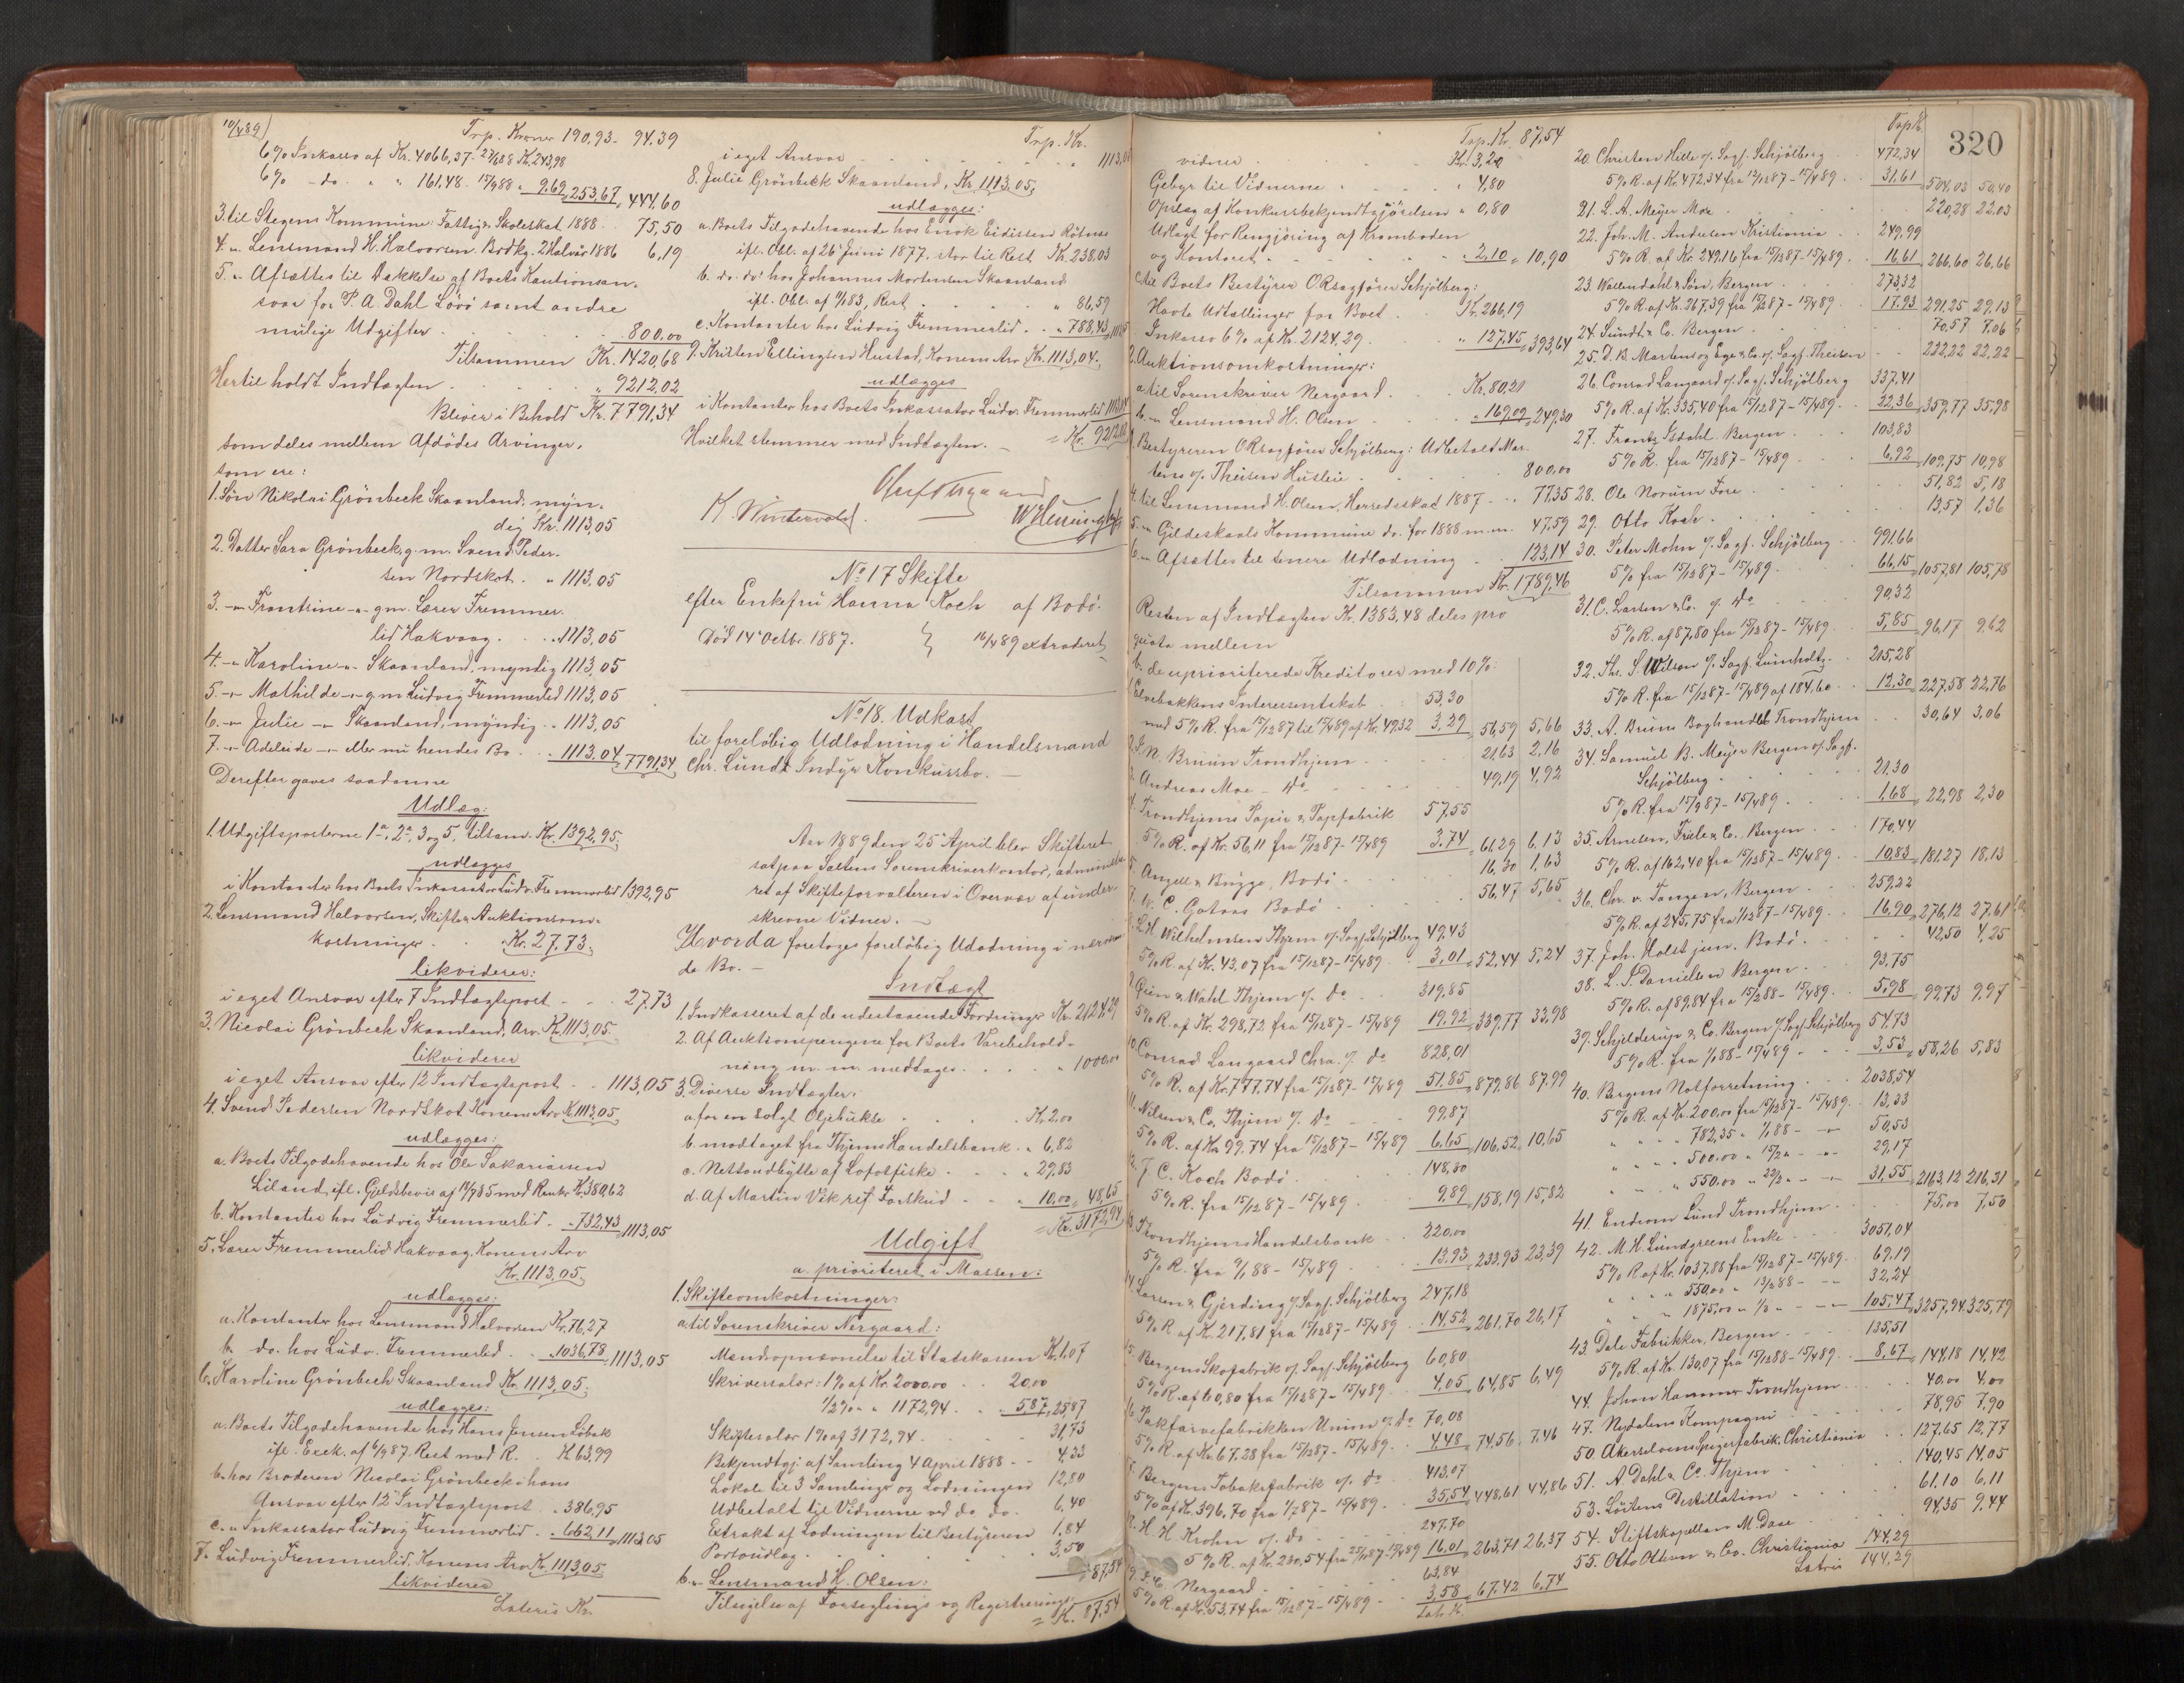 10/4 89
Trp. Kroner 190,93 - 94,39
6% Inkasso af Kr. 4066,37 - 27/1288 Kr. 243,98
6% - do. " " 161,48 - 15/988 " 9,69 = 253,67 = 444,60
3. til Stegens Kommune: Fattig & Skoleskat 1888 . 75,50
4. " Lensmand H. Halvorsen. Brdkg. 2 Halvår 1886 6,19
5. " Afsættes til Dækkelse af Boets Kautionsan-
svar for P. A. Dahl Lövö samt andre
mulige Udgifter . . . 800,00
Tilsammen Kr. 1420,68
Hertil holdt Indtægten . . . " 9212,02
Bliver i Behold Kr. 7791,34
som deles mellem Afdödes Arvinger,
som ere:
1. Sön Nikolai Grönbeck Skaanland, myn-
dig Kr. 1113,05
2. Datter Sara Grönbeck, g. m. Svend Peder-
sen Nordskot . " 1113,05
3. -"- Frantsine -"- g. m. Lærer Fremmer-
lid Hakvaag . . " 1113,05
4. -"- Karoline -"- Skaanland, myndig 1113,05
5. -"- Mathilde -"- g m Ludvig Fremmerlid 1113,05
6. -"- Julie -"- Skaanland, myndig . . 1113,05
7. -"- Adeleide -"- eller nu hendes Bo . . 1113,04 = 7791,34
Derefter gaves saadanne
Udlæg:
1. Udgiftsposterne 1a, 2a, 3 og 5, tilsam. Kr. 1392,95:
udlægges
i Kontanter hos Boets Inkassator Ludv. Fremmerlid 1392,95
2. Lensmand Halvorsen, Skifte & Auktionsom-
kostninger . . Kr. 27,73:
likviderer:
i eget Ansvar efter 7 Indtægtspost - . . 27,73
3. Nicolai Grönbech Skaanland, Arv. Kr. 1113,05:
likviderer
i eget Ansvar efter 12 Indtægtspost . . 1113,05
4. Svend Pedersen Nordskot Konens Arv K. 1113,05
udlægges:
a. Boets Tilgodehavende hos Ole Sakariassen
Liland, ifl. Gjeldsbevis af 14/985 med Renter Kr. 380,62
b. Kontanter hos Ludvig Fremmerlid . " 732,43 = 1113,05
5. Lærer Fremmerlid Hakvaag, Konens Arv
Kr. 1113,05:
udlægges:
a. Kontanter hos Lensmand Halvorsen Kr. 76,27
b. do. hos Ludv. Fremmerlid . . " 1036,78 = 1113,05
6. Karoline Grönbech Skaanland Kr. 1113,05:
udlægges:
a. Boets Tilgodehavende hos Hans Jensen Löbak
ifl. Exek. af 6/987. Rest med R. . K. 63,99
b. hos Broderen Nicolai Grönbeck i hans
Ansvar efter 12 Indtægtspost . " 386,95
c. " Inkassator Ludvig Fremmerlid . " 662,11 = 1113,05
7. Ludvig Fremmerlid, Konens Arv K. 1113,05:
likviderer
Lateris Kr.
Trp. Kr.
i eget Ansvar . . . . " 1113,05
8. Julie Grönbeck Skaanland, Kr. 1113,05:
udlægges:
a. Boets Tilgodehavende hos Enok Eidissen Rötnes
ifl. Obl. af 26 Juni 1877, stor til Rest Kr. 238,03
b. do. do. hos Johannes Mortensen Skaanland
ifl. Obl. af 9/183, Rest . . . " 86,59
c. Kontanter hos Ludvig Fremmerlid . . " 788,43 = 1113,05
9. Kristen Ellingsen Hustad, Konens Arv Kr. 1113,04:
udlægges
i Kontanter hos Boets Inkassator Ludv. Fremmerlid 1113,04
Hvilket stemmer med Indtægten. — = Kr. 9212,02
K. Wintervold.
No 17 Skifte
efter Enkefru Hanna Koch af Bodö.
Död 14 Octbr. 1887. } 16/489 extraderet
No 18. Udkast
til foreløbig Udlodning i Handelsmand
Chr. Lundt Indyr Konkursbo. —
Aar 1889 den 25 April blev Skifteret
sat paa Saltens Sorenskriverkontor, administre-
ret af Skifteforvalteren i Overvær af under-
skrevne Vidner. —
Hvorda foretoges foreløbig Udlodning i nærværen-
de Bo. —
Indtægt
1. Indkasseret af de udestaaende Fordringer Kr. 2124,29
2. Af Auktionspengene for Boets Varebehold-
ning m. m. medtages . . . " 1000,00
3. Diverse Indtægter:
a. for en solgt Oljebukse . . . Kr. 2,00
b. modtaget fra Thjems Handelsbank . " 6,82
c. Nettoudbytte af Lofotfiske . . . " 29,83
d. Af Martin Vik ref Forskud . . " 10,00 = 48,65
= Kr. 3172,94
Udgift
a. prioriteret i Massen:
1. Skifteomkostninger:
a. til Sorenskriver Nergaard:
Mændsopnævnelse til Statskassen Kr. 1,07
Skriversalær: 1% af Kr. 2000,00 . . 20,00
1/2% " " 1172,94 . . 5,87 = 25,87
Skiftesalær 1% af 3172,94 . . . 31,73
Bekjendtgj. af Samling 4 April 1888 - - 4,33
Lokale til 3 Samlinger og Lodningen 12,80
Udbetalt til Vidnerne ved do do. 6,40
Extrakt af Lodningen til Bestyreren 1,84
Portoudlæg . . . . . 3,50
= 87,54
b. " Lensmand H. Olsen:
Tilsigelse af Forseglings og Registrerings-
= K. 87,54
Trp. Kr. 87,54
vidner . . . . Kr. 3,20
Gebyr til Vidnerne . . . " 4,80
Opslag af Konkursbekjendtgjörelsen " 0,80
Udlagt for Rengjöring af Kramboden
og Kontoret . . . . " 2,10 = 10,90
c. til Boets Bestyrer ORsagförer Schjölberg:
Havte Udtællinger for Boet . Kr. 266,19
Inkasso 6% af Kr. 2124,29 . . " 127,45 = 393,64
2. Auktionsomkostninger:
a. til Sorenskriver Nergaard . . Kr. 80,21
b. " Lensmand H. Olsen . . " 169,09 = 249,30
3. Bestyreren ORsagförer Schjölberg: Udbetald Mar-
tens o/. Theisen Husleie . . . 800,00
4. til Lensmand H. Olsen, Herredsskat 1887 . . " 77,35
5. " Gildeskaals Kommune do. for 1888 m. m. 47,59
6. " Afsættes til senere Udlodning . 123,14
Tilsammen Kr. 1789,46
Resten af Indtægten Kr. 1383,48 deles pro
quota mellem
b. de uprioriterede Kreditorer med 10%:
1. Elvebakkens Interessentskab . . 53,30
med 5% R. fra 15/1287 til 15/489 af Kr. 49,32 3,29 = 56,59 5,66
2. F. N. Bruun Trondhjem . . . 21,63 2,16
3. Andreas Moe - Do . . . 49,19 4,92
4. Trondhjems Papir & Papfabrik 57,55
5% R. af Kr. 56,11 fra 15/1287 - 15/489 3,74 = 61,29 6,13
5. Angell & Brügge, Bodö . . . 16,30 1,63
7. W. C. Gotaas Bodö . . . 56,47 5,65
8. L. H. Wilhelmsen Thjem o/. Sagf. Schjölberg 49,43
5% R. af Kr. 43,07 fra 15/1287 - 15/489 . 3,01 = 52,44 5,24
9. Grün & Wahl Thjem o/. Do . . 319,85
5% R. af Kr. 298,72 fra 15/1287 - 15/489 19,92 = 339,77 33,98
10. Conrad Langaard Chra. o/. do 828,01
5% R. af Kr. 777,74 fra 15/1287 - 15/489 51,85 = 879,86 87,99
11. Nilsen & Co, Thjem o/. Do . . 99,87
5% R. af Kr. 99,74 fra 15/1287 - 15/489 6,65 = 106,52 10,65
12. J. C. Koch Bodö . . . 148,30
5% R. fra 15/1287 - 15/489 . . 9,89 = 158,19 15,82
13. Trondhjems Handelsbank . . 220,00
5% R. fra 9/188 - 15/489 . . 13,93 = 233,93 23,39
14. Larsen & Gjerding o/. Sagf. Schjölberg 247,18
5% R. af K. 217,81 fra 15/1287 - 15/489 . 14,52 = 261,70 26,17
15. Bergens Skofabrik o/. Sagf. Schjölberg 60,80
5% R. af 60,80 fra 15/1287 - 15/489 . . 4,05 = 64,85 6,49
16. Pakfarvefabrikken Union o/. Do 70,08
5% R. af Kr. 67,28 fra 15/1287 - 15/489 . 4,48 = 74,56 7,46
17. Bergens Tobaksfabrik o/. do . 413,07
5% af K. 396,70 fra 1/787 - 15/489 . . 35,54 = 448,61 44,86
18. H. H. Krohn o/. do . . . 247,70
5% R. af Kr. 230,54 fra 25/1187 - 15/489 16,01 = 263,71 26,37
19. Nergaard . . . 63,84
5% R. af Kr. 53,74 fra 15/1287 - 15/489 . 3,58 = 67,42 6,74
Lat. K.
320
Trp. K.
20. Christen Hille o/. Sagf. Schjölberg . 472,34
5% R. af Kr. 472,34 fra 15/1287 - 15/489 . . 31,61 = 504,03 50,40
21. L. A. Meyer Moe . . . . 220,28 22,03
22. Joh. M. Andersen Kristiania . . 249,99
5% R. af Kr. 249,16 fra 15/1287 - 15/489 . . 16,61 = 266,60 26,66
23. Wallendahl & Sön, Bergen . . . 273,32
5% R. af Kr. 267,39 fra 15/1287 - 15/489 . . 17,93 291,25 29,13
24. Sundt & Co. Bergen . . . 70,57 7,06
25. D. B. Martens og Ege & Co. o/. Sagf. Theisen . . 222,22 22,22
26. Conrad Langaard o/. Sagf. Schjölberg 337,41
5% R. af Kr. 335,40 fra 15/1287 - 15/489 . . 22,36 = 359,77 35,98
27. Frantz Isdahl. Bergen . . . 103,83
5% R. fra 15/1287 - 15/489 . . 6,92 = 109,75 10,98
28. Ole Norum Fore . . . 51,82 5,18
29. Otto Koch . . . . 13,57 1,36
30. Peter Mohn o/. Sagf. Schjölberg . . 991,66
5% fra 15/1287 - 15/489 . . . 66,15 = 1057,81 105,78
31. C. Larsen & Co. o/. Do . . 90,32
5% R. af 87,80 fra 15/1287 - 15/489 . . 5,85 = 96,17 9,62
32. Thr. S. Wilson o/. Sagf. Lumholtz . . 215,28
5% R. fra 15/1287 - 15/489 af 184,60 . . 12,30 = 227,58 22,76
33. A. Bruns Boghandel Trondhjem . . 30,64 3,06
34. Samuel B. Meyer Bergen o/. Sagf.
Schjölberg . . . . 21,30
5% R. fra 15/987 - 15/489 . . . 1,68 = 22,98 2,30
35. Arnesen, Friele & Co. Bergen . . 170,44
5% R. af 162,40 fra 15/1287 - 15/489 . . 10,83 = 181,27 18,13
36. Chr. v. Tangen, Bergen . . . 259,22
5% R. af 245,75 fra 1/1287 - 15/489 . . 16,90 = 276,12 27,61
37. Joh. Holst jun. Bodö . . . 42,50 4,25
38. L. S. Danielsen Bergen . . . 93,75
5% R. af 89,84 fra 15/1288 - 15/489 . . 5,98 = 99,73 9,97
39. Schjelderup & Co. Bergen o/. Sagf. Schjölberg 54,73
5% R. fra 1/188 - 15/489 . . . 3,53 = 58,26 5,83
40. Bergens Notforretning . . . 2038,54
5% R. af K. 200,00 fra 15/1287 - 15/489 . . 13,33
" " " " 782,35 " 1/188 - -"- 50,53
" " " " 500,00 " 15/2 " - -"- 29,17
" " " " 550,00 " 22/2 " - -"- 31,55 = 2163,12 216,31
41. Endrom Lund Trondhjem . . . 75,00 7,50
42. M. H. Lundgreens Enke . . . 3051,04
5% R. af Kr. 1037,88 fra 15/1287 - 15/489 . 69,19
" " " 550,00 " 13/288 - -"- 32,24
" " " 1875,00 " 1/3 " - -"- 105,47 = 3257,94 325,79
43. Dale Fabrikker, Bergen . . . 135,51
5% R. af Kr. 130,07 fra 15/1288 - 15/489 . . 8,67 = 144,18 14,42
44. Johan Hammer Trondhjem . . . 40,00 4,00
47. Nydalens Kompagni . . . 78,95 7,90
50. Akerselvens Spigerfabrik, Christiania . . 127,65 12,77
51. A Dahl & Co. Thjem . . . 140,45 14,05
53. Löitens Destillation . . . 61,10 6,11
54. Stiftskapellan M. Dase . . . 94,35 9,44
55. Otto Olsen & Co. Christiania 144,29
Latris 144,29